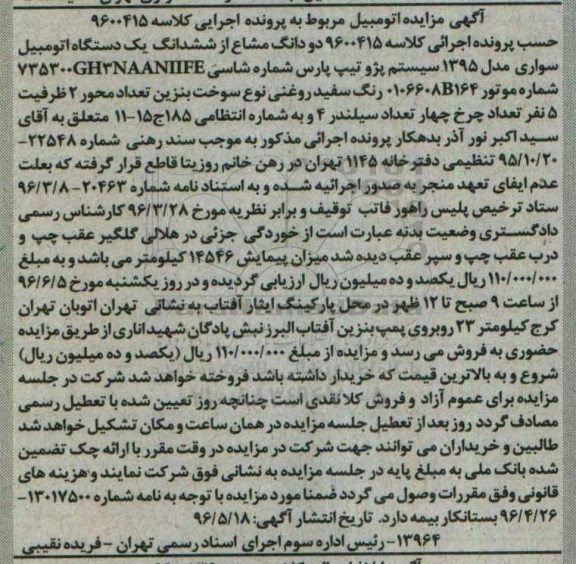 آگهی مزایده اتومبیل مربوط به پرونده اجرایی کلاسه ۹۶۰۰۴۱۵
حسب پرونده اجرائی کلاسه ۹۶۰۰۴۱۵ دو دانگ مشاع از ششدانگ یک دستگاه اتومبیل
سواری مدل ۱۳۹۵ سیستم پژو تیپ پارس شماره شاسی ۷۳۵۳۰۰GH۳NAANIIFE
شماره موتور ۰۱۰۶۶۰۸B۱۶۴ رنگ سفید روغنی نوع سوخت بنزین تعداد محور ۲ ظرفیت
۵ نفر تعداد چرخ چهار تعداد سیلندر ۴ و به شماره انتظامی ۱۸۵ج۱۵-۱۱ متعلق به آقای
سید اکبر نور آذر بدهکار پرونده اجرائی مذکور به موجب سند رهنی شماره ۲۲۵۴۸-
۹۵/۱۰/۲۰ تنظیمی دفترخانه ۱۱۴۵ تهران در رهن خانم روزیتا قاطع قرار گرفته که بعلت
عدم ایفای تعهد منجر به صدور اجرائیه شده و به استناد نامه شماره ۲۰۴۶۳-۹۶/۳/۸
ستاد ترخیص پلیس راهور فاتب توقیف و برابر نظریه مورخ ۹۶/۳/۲۸ کارشناس رسمی
دادگستری وضعیت بدنه عبارت است از خوردگی جزئی در هلالی گلگیر عقب چپ و
درب عقب چپ و سپر عقب دیده شد میزان پیمایش ۱۴۵۴۶ کیلومتر می باشد و به مبلغ
۱۱۰/۰۰۰/۰۰۰ ریال یکصد و ده میلیون ریال ارزیابی گردیده و در روز یکشنبه مورخ ۹۶/۶/۵
از ساعت ۹ صبح تا ۱۲ ظهر در محل پارکینگ ایثار آفتاب به نشانی تهران اتوبان تهران
کرج کیلومتر ۲۳ روبروی پمپ بنزین آفتاب البرز نبش پادگان شهید اناری از طریق مزایده
حضوری به فروش می رسد و مزایده از مبلغ ۱۱۰/۰۰۰/۰۰۰ ریال (یکصد و ده میلیون ریال)
شروع و به بالاترین قیمت که خریدار داشته باشد فروخته خواهد شد شرکت در جلسه
مزایده برای عموم آزاد و فروش کلا نقدی است چنانچه روز تعیین شده با تعطیل رسمی
مصادف گردد روز بعد از تعطیل جلسه مزایده در همان ساعت و مکان تشکیل خواهد شد
طالبین و خریداران می توانند جهت شرکت در مزایده در وقت مقرر با ارائه چک تضمین
شده بانک ملی به مبلغ پایه در جلسه مزایده به نشانی فوق شرکت نمایند و هزینه های
قانونی وفق مقررات وصول می گردد ضمنا مورد مزایده با توجه به نامه شماره ۱۳۰۱۷۵۰۰-
۹۶/۴/۲۶ بستانکار بیمه دارد. تاریخ انتشار آگهی: ۹۶/۵/۱۸
۱۳۹۶۴-رئیس اداره سوم اجرای اسناد رسمی تهران - فریده نقیبی